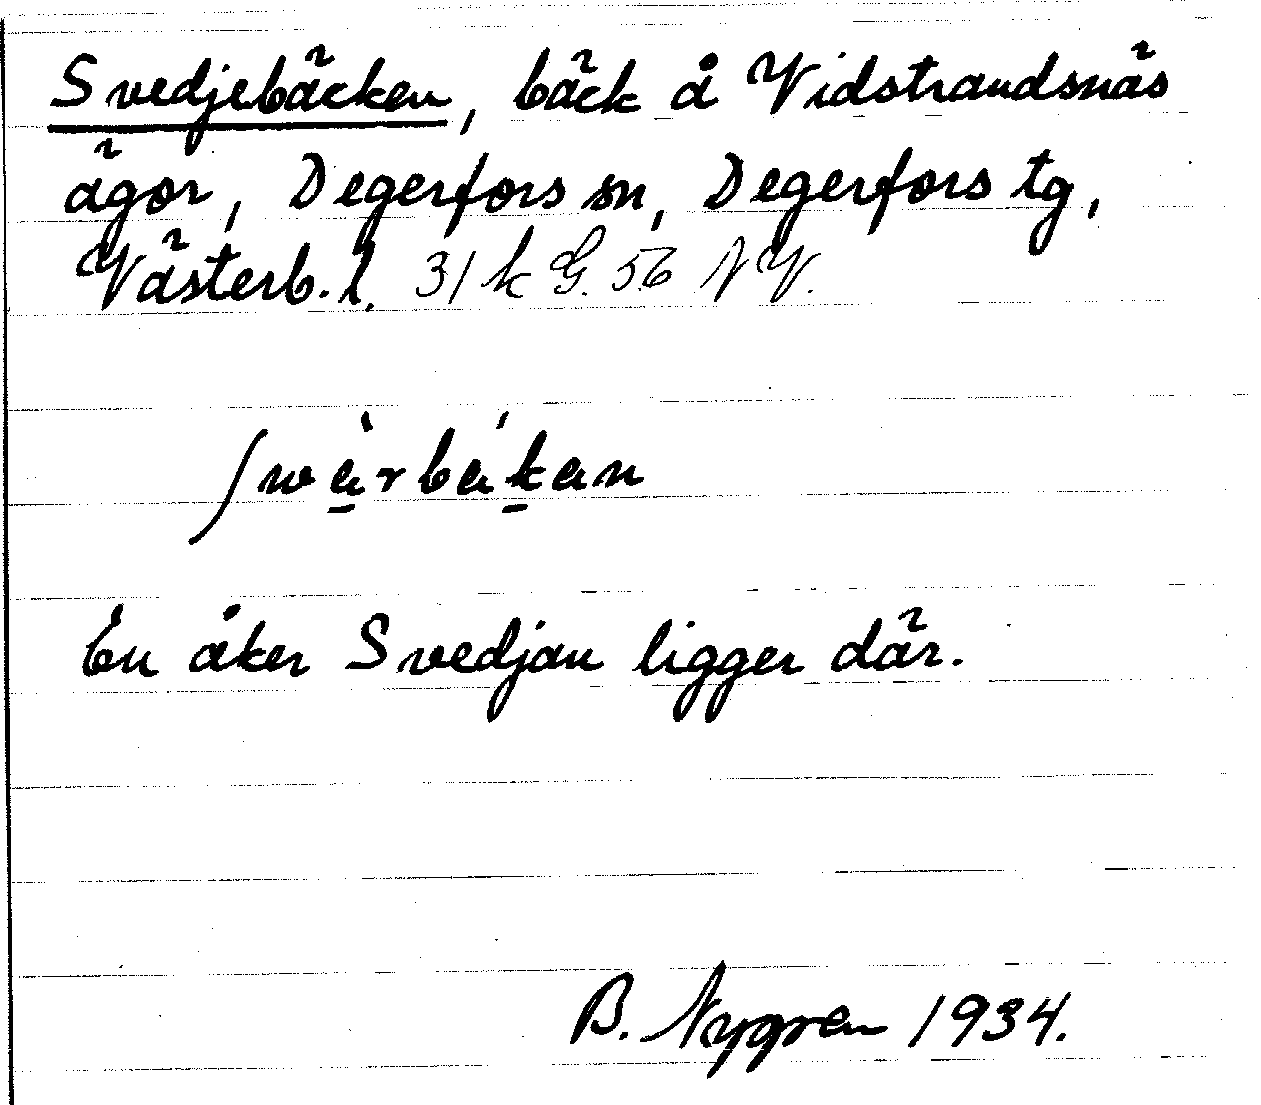 Svedjebäcken, bäck å Vidstrandsnäs
ägor, Degerfors sn, Degerfors tg,
Västerb. l. 31 k G. 56 NV.
En åker Svedjan ligger där.
B. Nygren 1934.